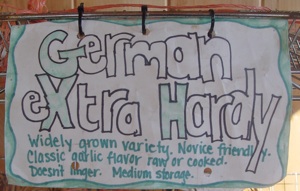 German
eXtra Hardy
Widely grown variety. Novice friendly.
Classic garlic flavor raw or cooked.
Doesn't linger. Medium storage.